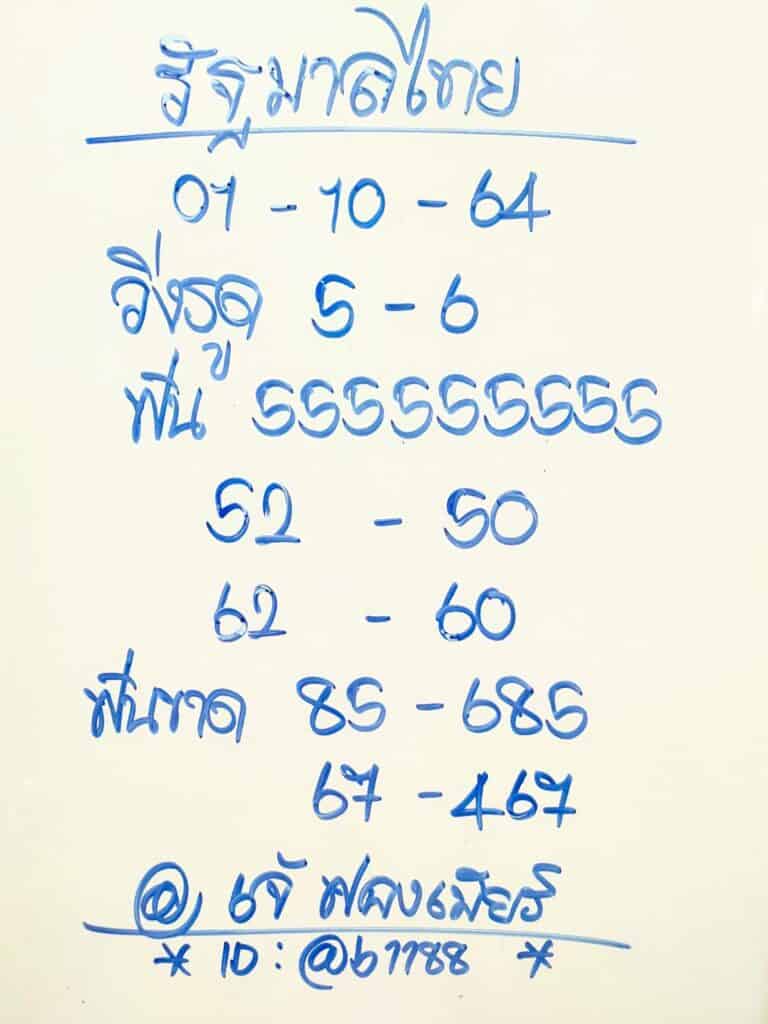 รัฐบาลไทย
01 - 10 - 64
วิ่งรูด 5 - 6
ฟัน 555555555
52 - 50
62 - 60
ฟันขาด 85 - 685
67 - 467
@ เจ๊ ฟองเบียร์
* ID : @b1188 *